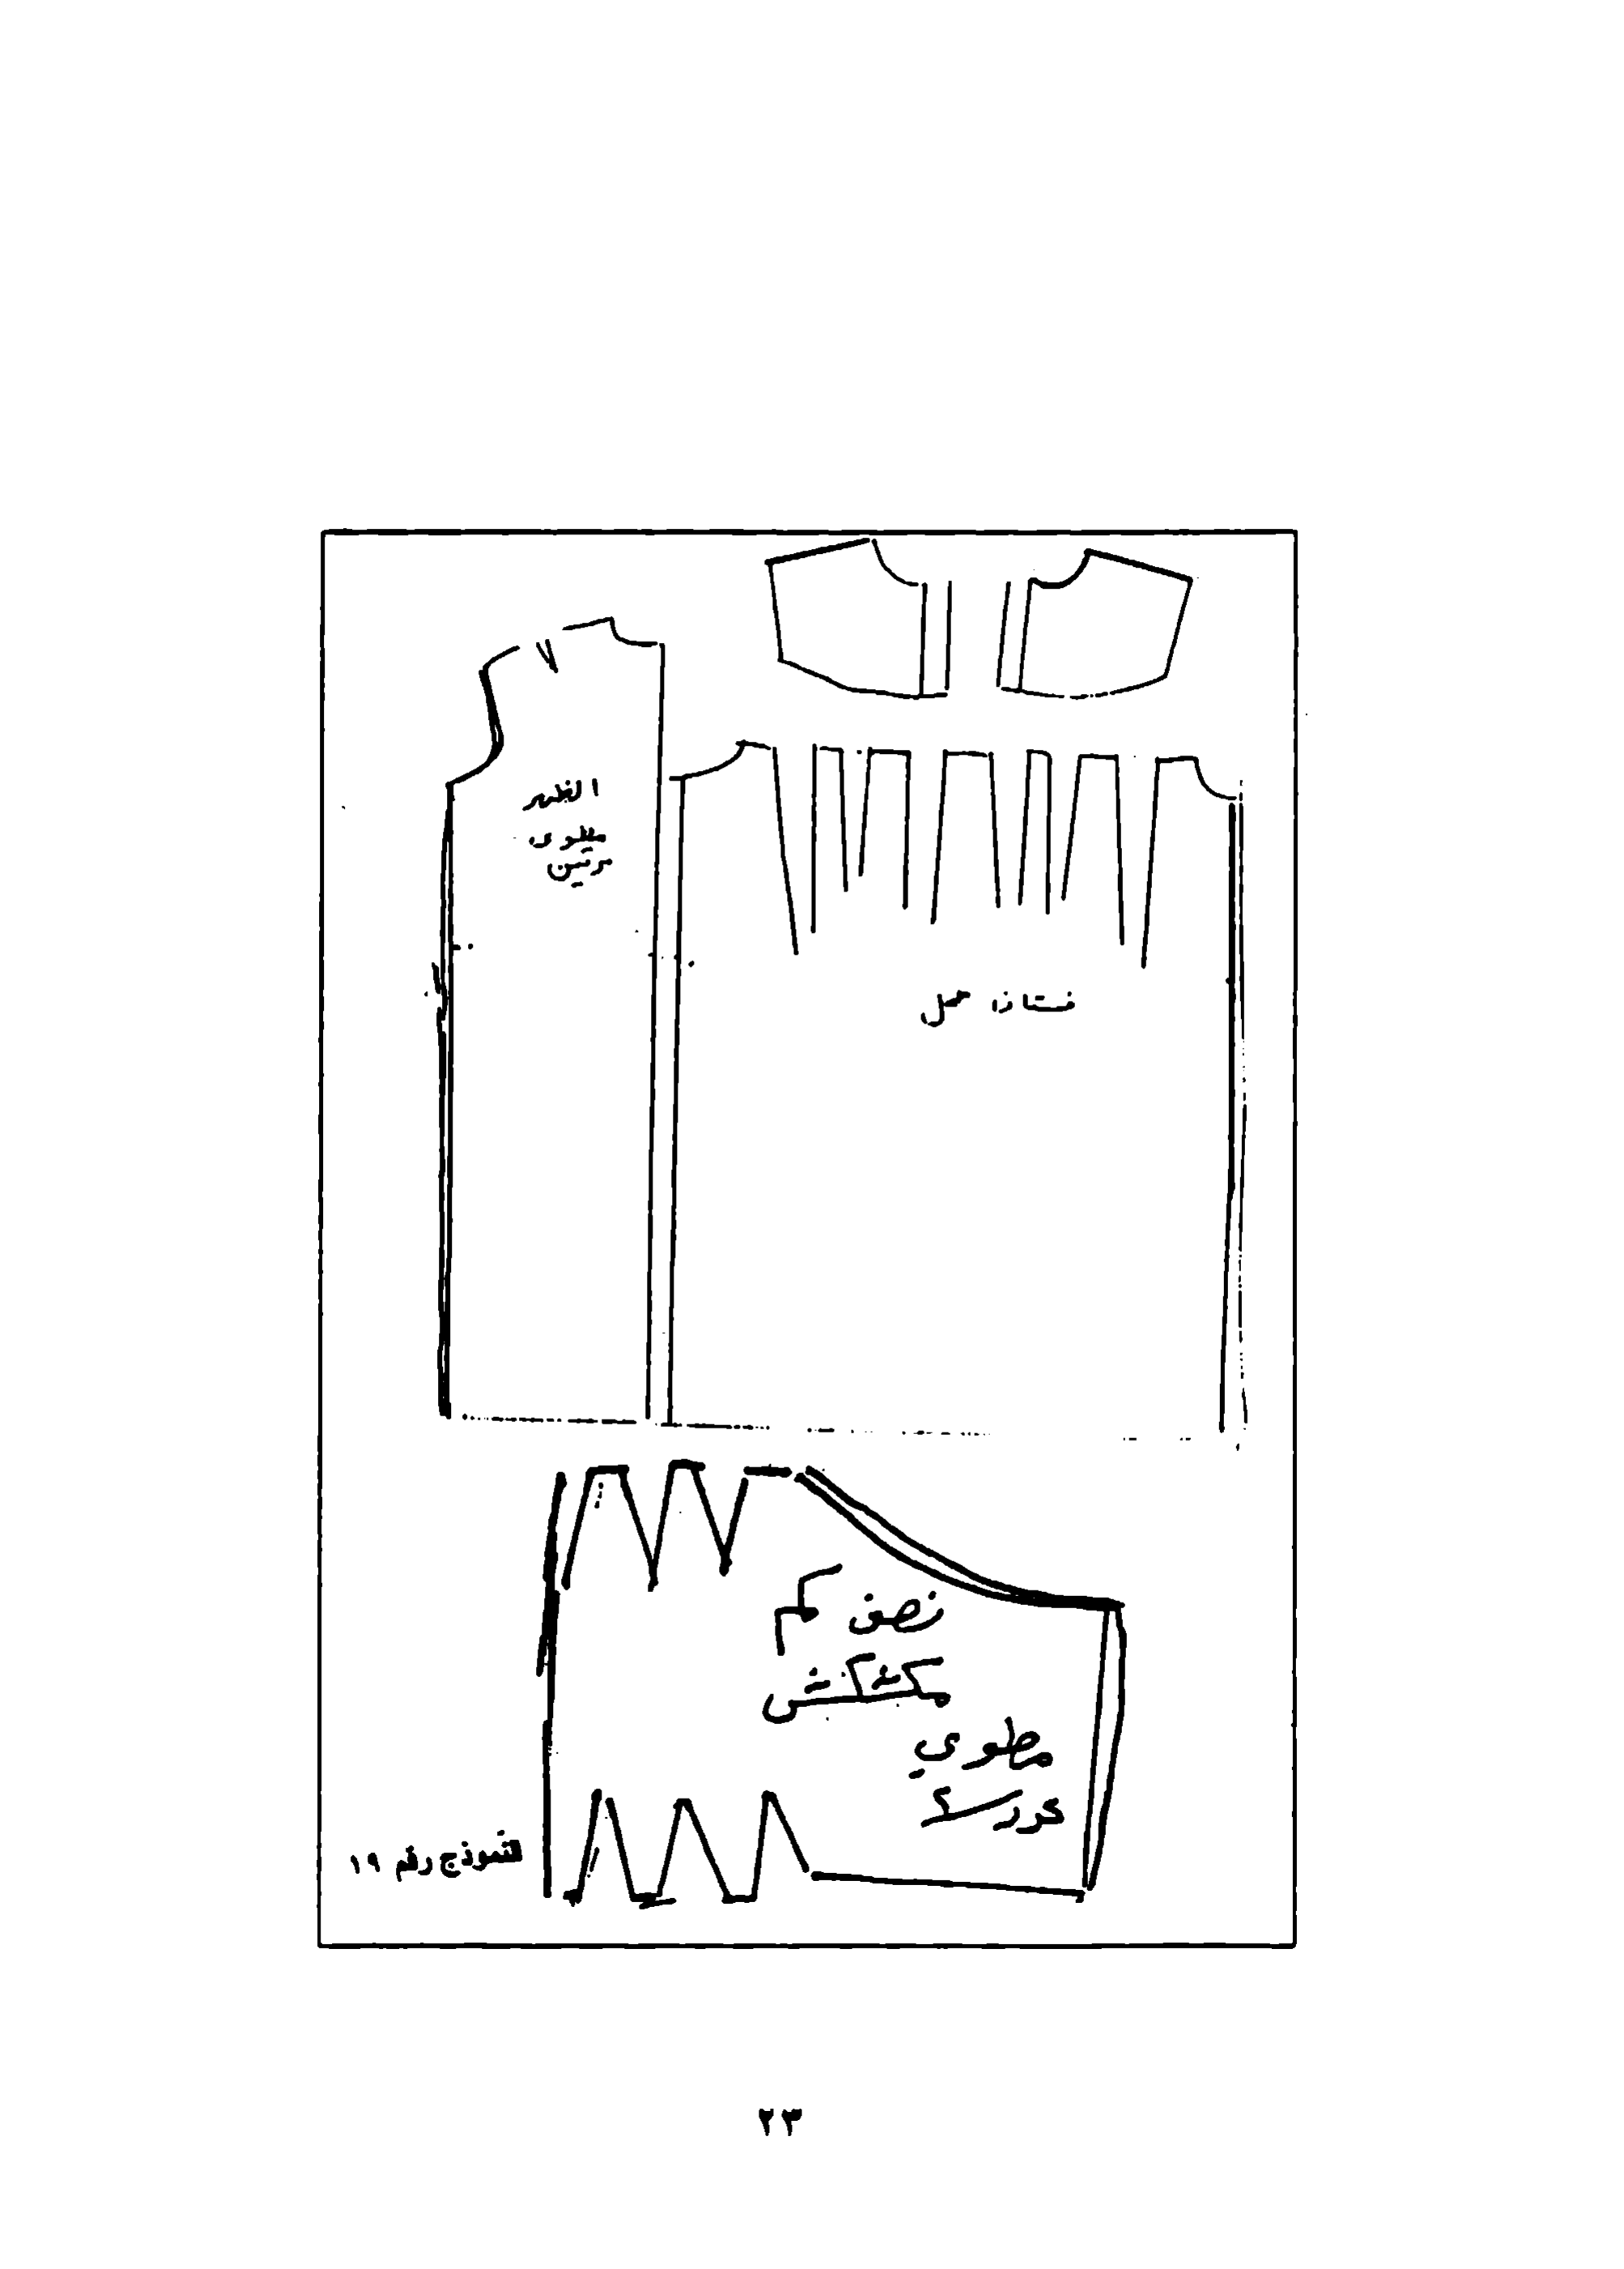 الظهر
مطوي
مرتين
فستان حمل
نصف كم
مكشكش
مطوي
النموذج رقم ١٩
٢٣